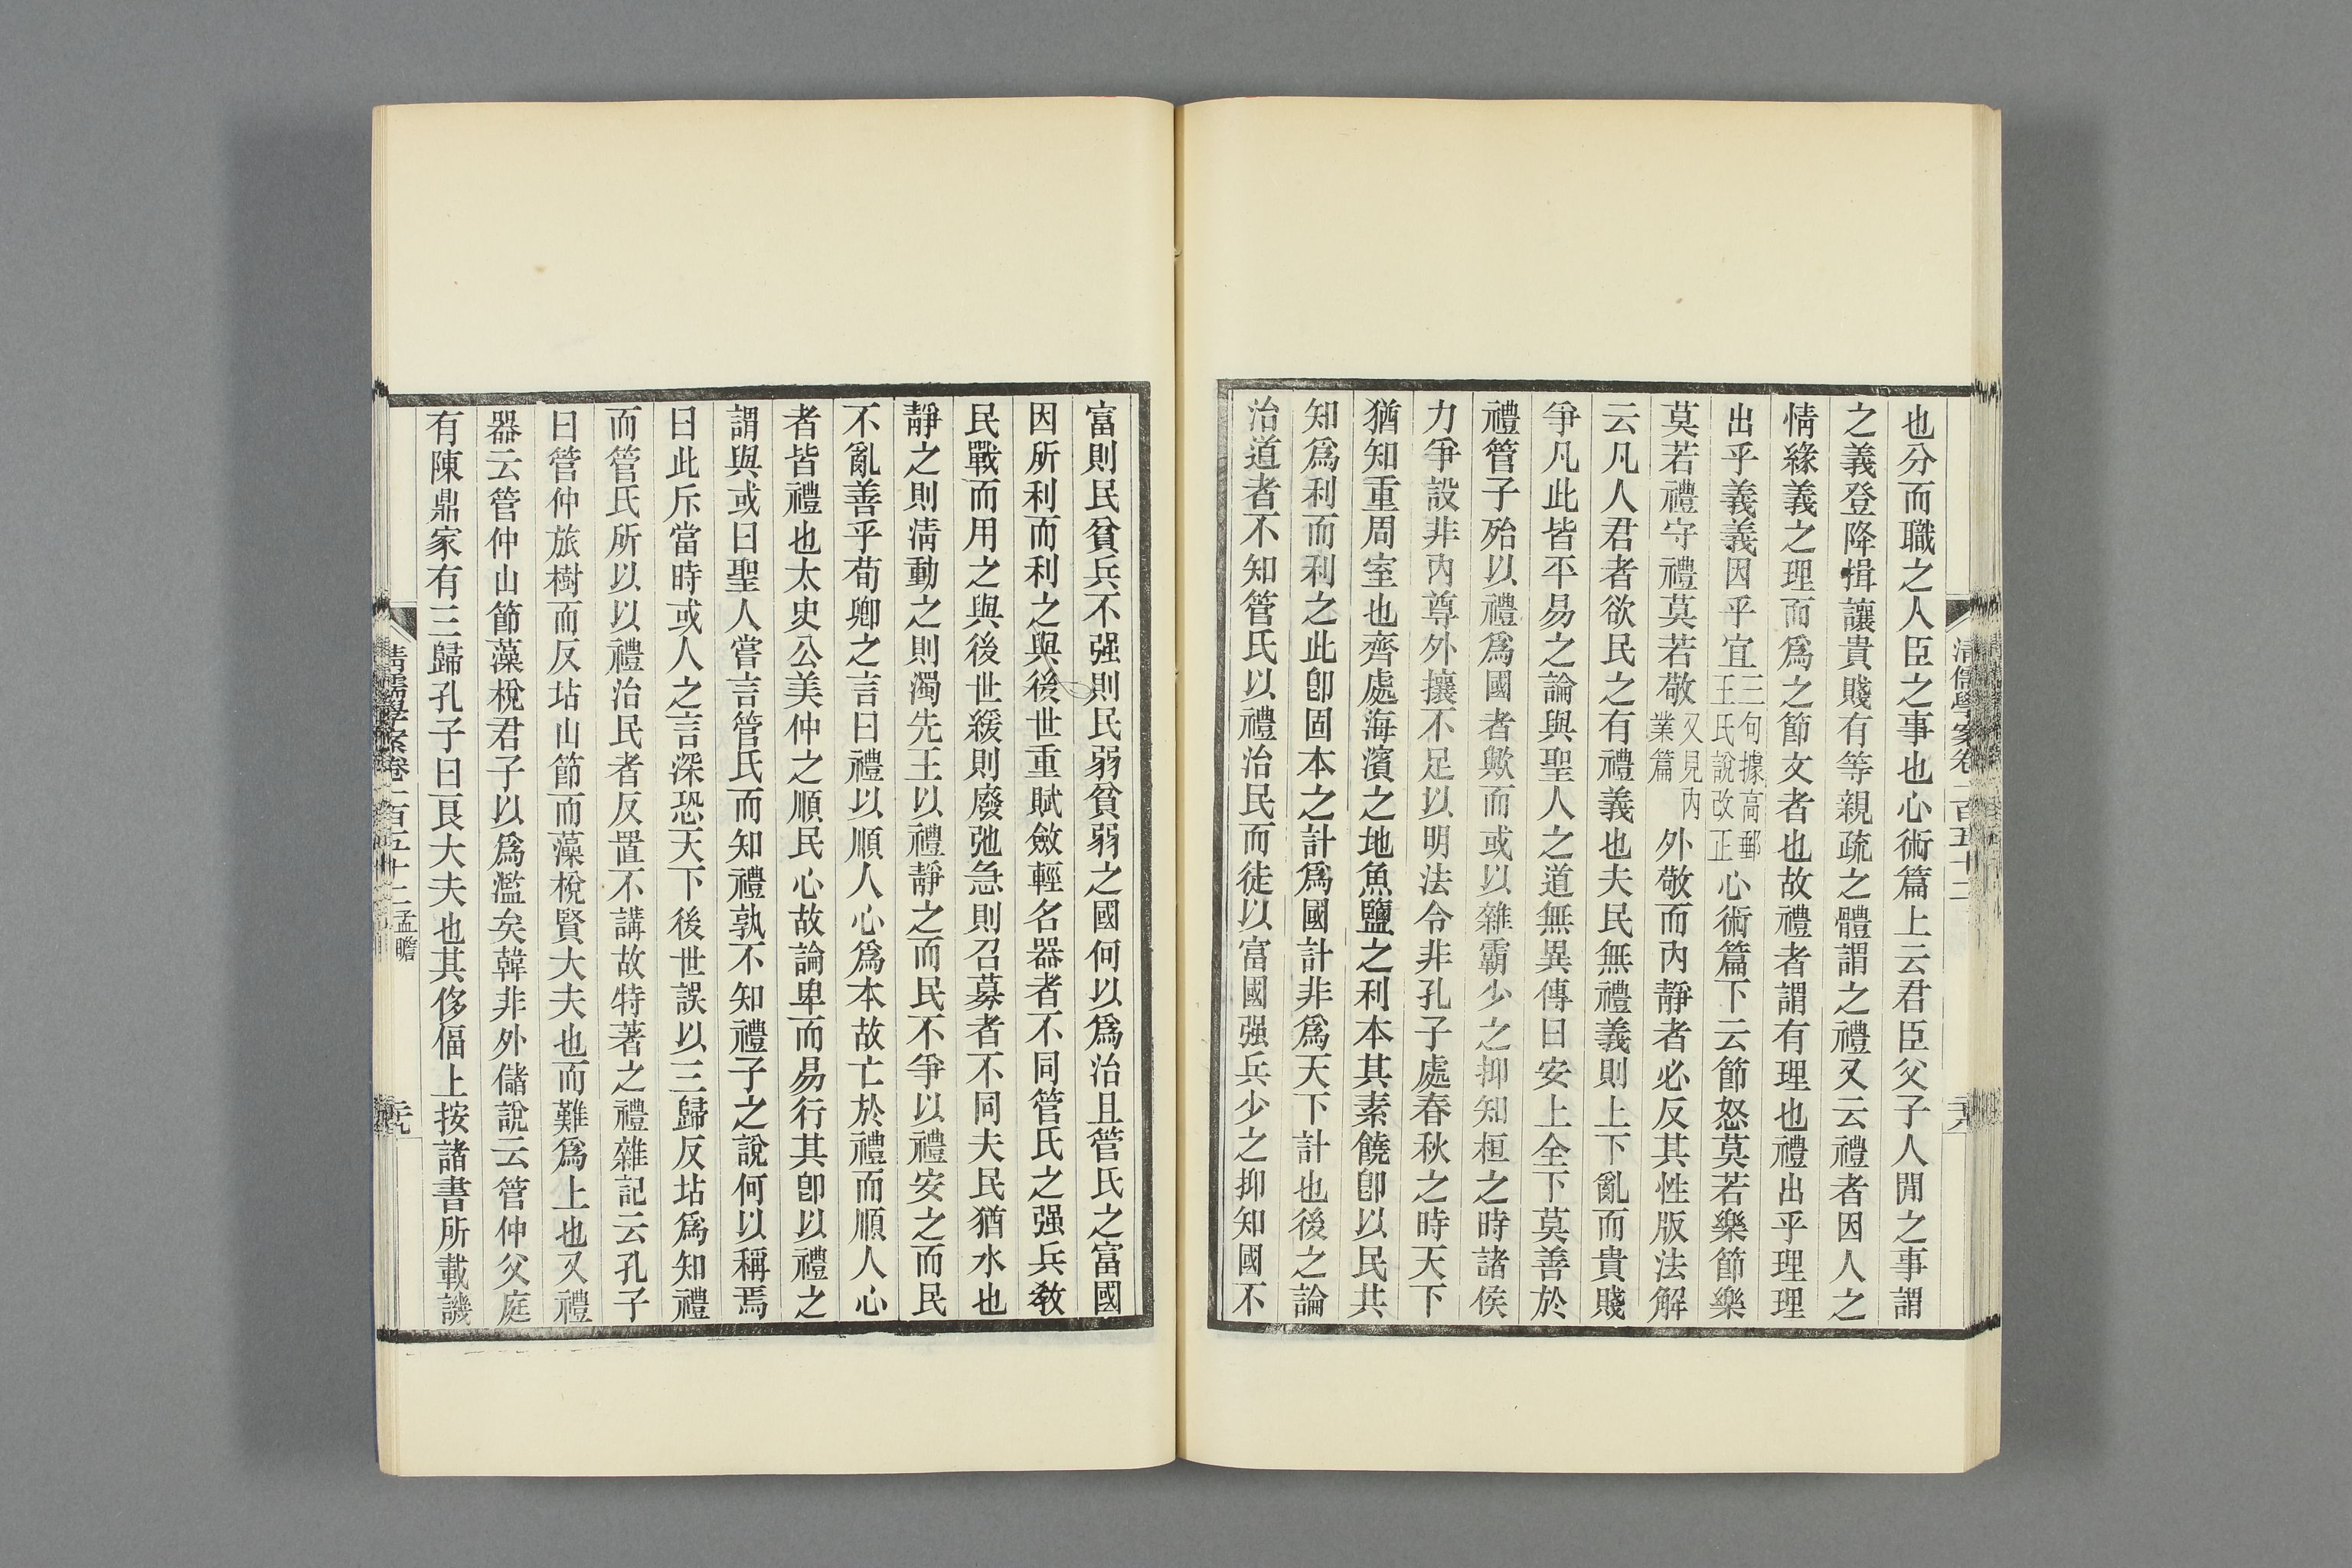 也分而職之人臣之事也心術篇上云君臣父子人閒之事謂
之義登降揖讓貴賤有等親疏之體謂之禮又云禮者因人之
情緣義之理而爲之節文者也故禮者謂有理也禮出乎理理
出乎義義因乎宜三句據高郵王氏說改正心術篇下云節怒莫若樂節樂
莫若禮守禮莫若敬又見內業篇外敬而內靜者必反其性版法解
云凡人君者欲民之有禮義也夫民無禮義則上下亂而貴賤
爭凡此皆平易之論與聖人之道無異傳曰安上全下莫善於
禮管子殆以禮爲國者歟而或以雜霸少之抑知桓之時諸侯
力爭設非內尊外攘不足以明法令非孔子處春秋之時天下
猶知重周室也齊處海濱之地魚鹽之利本其素饒卽以民共
知爲利而利之此卽固本之計爲國計非爲天下計也後之論
治道者不知管氏以禮治民而徒以富國强兵少之抑知國不
清儒學案卷一百五十二
富則民貧兵不强則民弱貧弱之國何以爲治且管氏之富國
因所利而利之與後世重賦斂輕名器者不同管氏之强兵敎
民戰而用之與後世緩則廢弛急則召募者不同夫民猶水也
靜之則淸動之則濁先王以禮靜之而民不爭以禮安之而民
不亂善乎荀卿之言曰禮以順人心爲本故亡於禮而順人心
者皆禮也太史公美仲之順民心故論卑而易行其卽以禮之
謂與或曰聖人嘗言管氏而知禮孰不知禮子之說何以稱焉
曰此斥當時或人之言深恐天下後世誤以三歸反坫爲知禮
而管氏所以以禮治民者反置不講故特著之禮雜記云孔子
曰管仲旅樹而反坫山節而藻梲賢大夫也而難爲上也又禮
器云管仲山節藻梲君子以爲濫矣韓非外儲說云管仲父庭
有陳鼎家有三歸孔子曰良大夫也其侈偪上按諸書所載譏
清儒學案卷一百五十二 孟瞻